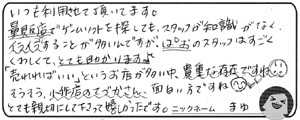 いつも利用させて頂いてます。
量販店でゲームソフトを探しても、スタッフが知識がなく、
イライラすることが多いんですが、ぱおのスタッフはすごく
くわしくて、とても助かります♪
「売れればいい」というお店が多い中、貴重な存在ですね
そうそう、小作店のてづかさん、面白い方ですね
とても親切にして下さって嬉しかったです。ニックネーム まゆ